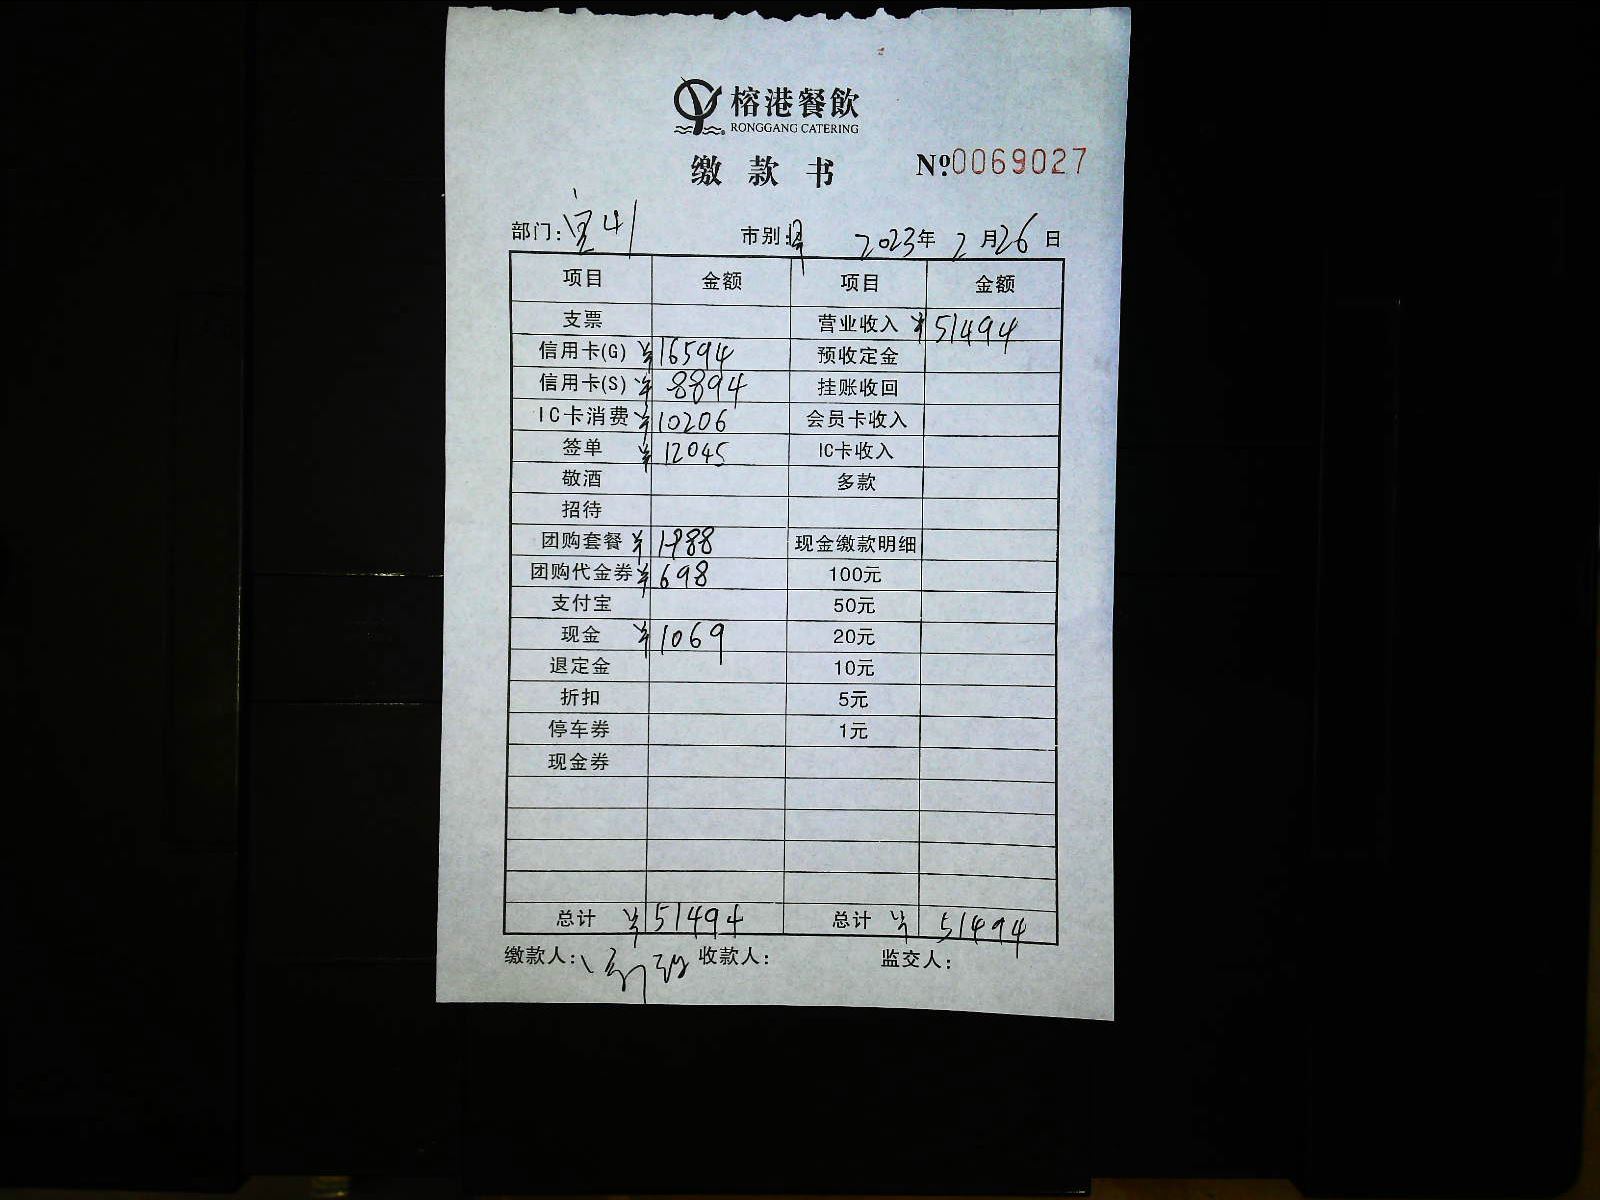 榕港餐飲
RONGGANG CATERING
缴款书 №0069027
部门: 市别: 2023年 2月26日
项目 金额 项目 金额
支票 营业收入 ¥51494
信用卡(G) ¥16594 预收定金
信用卡(S) ¥8894 挂账收回
IC卡消费 ¥10206 会员卡收入
签单 ¥12045 IC卡收入
敬酒 多款
招待
团购套餐 ¥1988 现金缴款明细
团购代金券 ¥698 100元
支付宝 50元
现金 ¥1069 20元
退定金 10元
折扣 5元
停车券 1元
现金券
总计 ¥51494 总计 ¥51494
缴款人: 收款人: 监交人: